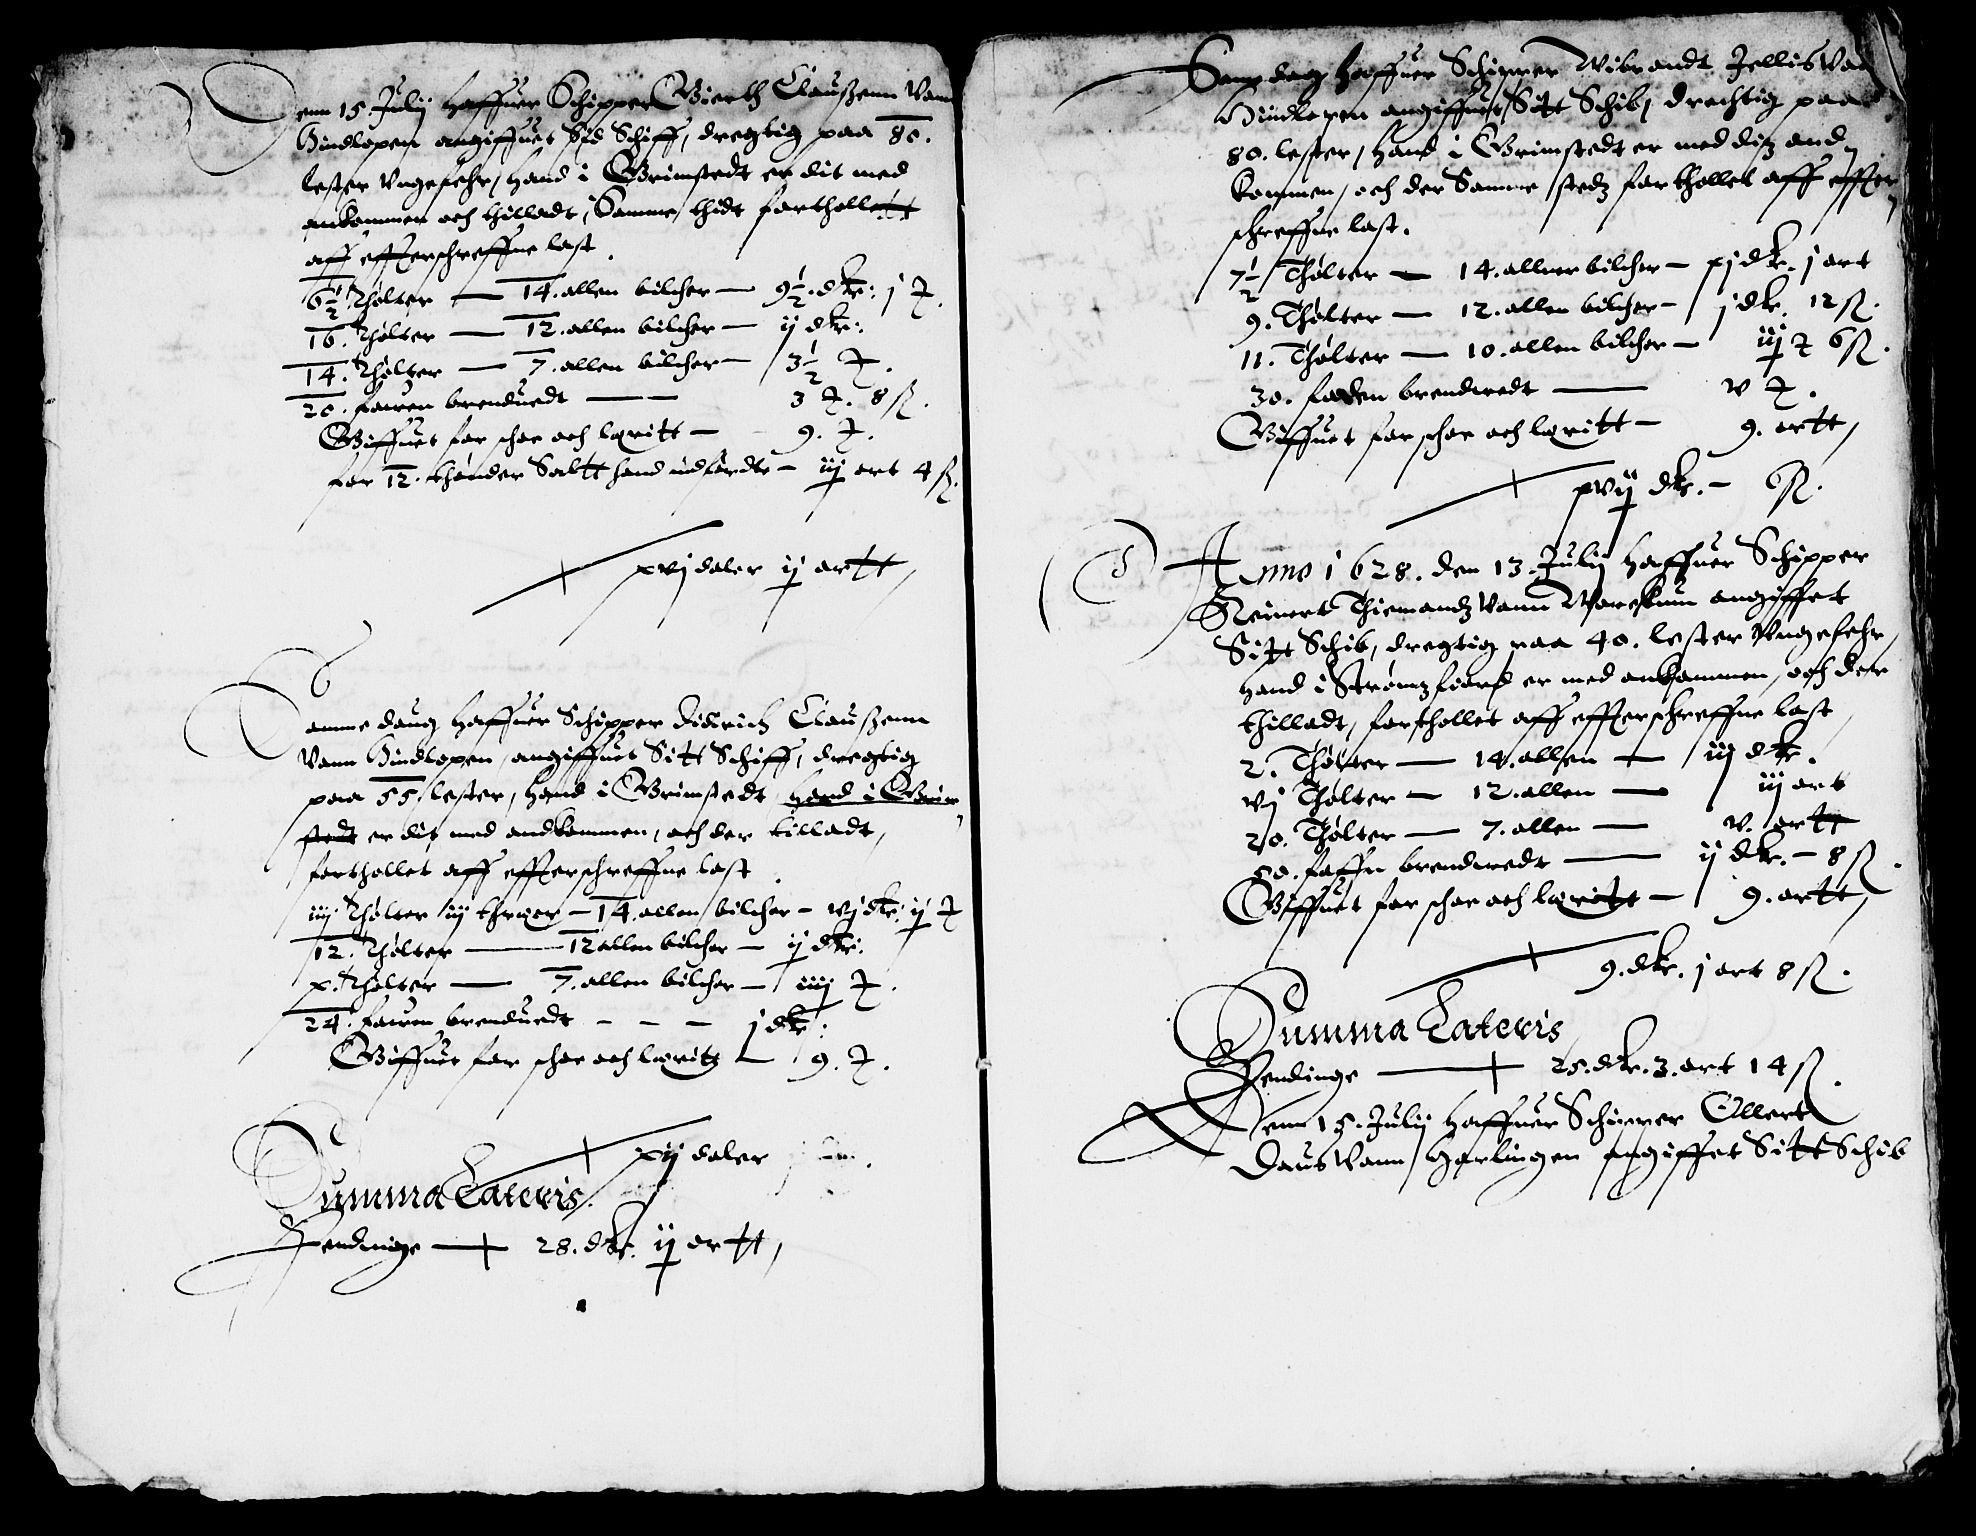 Denn 15 Julij Haffuer Schipper Gierth Claußenn Vann
Hindlopen angiffuet Sid Schiff, dregtig paa 80.
lester Vngefehr, Hand i Grimstedt er dit med
ankommen och thilladt, Samme thidt forthollett
aff effterschreffne last.
6½ Tholter — 14. allen bilcher — 9½. dlr: j ort.
16. Tholter — 12. allen bilcher — ij dlr:
14. Tholter — 7. allen bilcher — 3½ ort.
20. fauen brenduedt — — 3 ort. 8 ß.
Giffuet for schoe och loritt — 9. ort.
for 12. thønder Saltt hand udførdte — iij ort 4 ß.
xvj daler ij ortt,
Samme daug Haffuer Schipper Didrich Claußenn
Vann Hindlopen, angiffuet Sitt Schiff, dregtig
paa 55 lester, Hand i Grimstedt hand i Grim
stedt er dit med andkommen, och der tilladt,
forthollet aff effterschreffne last.
iiij Tholter iij thræer — 14. allen bilcher — vj dlr: ij ort
12. Tholter — 12 allen bilcher — ij dlr:
x. Tholter — 7. allen bilcher — iiij ort.
24. fauen brenduedt — — — j dlr:
Giffuet for schoe och loritt — 9. ort.
xij daler
Summa Lateris.
Pendinge — 28. dlr. ij ortt,
Same dag Haffuer Schipper Wibrandt Jellis Van
Hindlopen angiffuet Sitt Schib, drechtig paa
80. lester, Hand i Grimstedt er med ditz and
kommen, och der Samme stedz forthollet aff effter
schreffne last.
7½ Thølter — 14. allner bilcher — xj dlr. j ort
9. Thølter — 12. allen bilcher — j dlr. 12 ß.
11. Thølter — 10. allen bilcher — iij ort 6 ß.
30. faden brendwedt — v ort.
Giffuet for schoe och loritt — 9. ortt,
xvij dlr. — 6 ß.
Anno 1628. den 13. Julij Haffuer Schipper
Reinert Thiemandz Vann Worckum angiffet
Sitt Schib, dregtig paa 40. lester Vngefehr,
Hand i Strømzfiord er med ankommen, och der
thilladt, forthollet aff effterschreffne last
2. Thølter — 14. allen — iij dlr.
vj Thølter — 12. allen — iij ort
20. Thølter — 7. allen — v. ortt
50. faffn brendwedt — ij dlr. — 8 ß.
Giffuet for schoe och loritt — 9. ortt,
9. dlr. j ort 8 ß.
Summa Lateris
Pendinge — 25. dlr. 3. ort 14 ß.
Denn 15. Julij Haffuer Schipper Ellert
Daus Vann Harlingen angiffet Sitt Schib